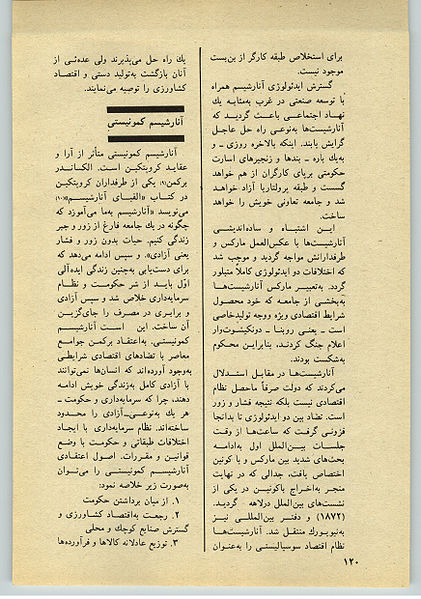 برای استخلاص طبقه کارگر از بن‌بست
موجود نیست.
گسترش ایدئولوژی آنارشیسم همراه
با توسعه صنعتی در غرب به‌مثابه یك
نهاد اجتماعی باعث گردید که
آنارشیست‌ها به‌نوعی راه حل عاجل
گرایش یابند. اینکه بالاخره روزی ـ و
به‌یك باره ـ بندها و زنجیرهای اسارت
حکومتی برپای کارگران از هم خواهد
گسست و طبقه پرولتاریا آزاد خواهد
شد و جامعه تعاونی خویش را خواهد
ساخت.
این اشتباه و ساده‌اندیشی
آنارشیست‌ها با عکس‌العمل مارکس و
طرفدارانش مواجه گردید و موجب شد
که اختلافات دو ایدئولوژی کاملا متبلور
گردد. به‌تعبیر مارکس آنارشیست‌ها
به‌بخشی از جامعه که خود محصول
شرایط اقتصادی ویژه ووجه تولیدخاصی
است ـ یعنی روبنا ـ دونکیشوت‌وار
اعلام جنگ کردند، بنابراین محکوم
به‌شکست بودند.
آنارشیست‌ها در مقابل استدلال
می‌کردند که دولت صرفاً ماحصل نظام
اقتصادی نیست بلکه نتیجه فشار و زور
است. تضاد بین دو ایدئولوژی تا بدانجا
فزونی گرفت که ساعت‌ها از وقت
جلسات بین‌الملل اول به‌ادامه
بحث‌های شدید بین مارکس و با کونین
اختصاص یافت، جدالی که در نهایت
منجر به‌اخراج باکونین در یکی از
نشست‌های بین‌الملل درلاهه گردید.
(۱۸۷۲) و دفتر بین‌المللی نیز
به‌نیویورك منتقل شد. آنارشیست‌ها
نظام اقتصاد سوسیالیستی را به‌عنوان
یك راه حل می‌پذیرند ولی عده‌ئی از
آنان بازگشت به‌تولید دستی و اقتصاد
کشاورزی را توصیه می‌نمایند.
آنارشیسم کمونیستی
آنارشیسم کمونیستی متأثر از آرا و
عقاید کروپتکین است. الکساندر
برکمن(۹) یکی از طرفداران کروپتکین
در کتاب «الفبای آنارشیسم»(۱۰)
می‌نویسد «آنارشیسم به‌ما می‌آموزد که
چگونه در یك جامعه فارغ از زور و جبر
زندگی کنیم. حیات بدون زور و فشار
یعنی آزادی». و سپس ادامه می‌دهد که
برای دست‌یابی به‌چنین زندگی ایده‌آلی
اول باید از شر حکومت و نظام
سرمایه‌داری خلاص شد و سپس آزادی
و برابری در مصرف را جای‌گزین
آن ساخت. این است آنارشیسم
کمونیستی. به‌اعتقاد برکمن جوامع
معاصر با تضادهای اقتصادی شرایطی
به‌وجود آورده‌اند که انسان‌ها نمی‌توانند
با آزادی کامل به‌زندگی خویش ادامه
دهند، چرا که سرمایه‌داری و حکومت ـ
هر یك به‌نوعی‌ـ آزادی را محدود
ساخته‌اند. نظام سرمایه‌داری با ایجاد
اختلافات طبقاتی و حکومت با وضع
قوانین و مقررات. اصول اعتقادی
آنارشیسم کمونیستی را می‌توان
به‌صورت زیر خلاصه نمود:
۱. از میان برداشتن حکومت
۲. رجعت به‌اقتصاد کشاورزی و
گسترش صنایع کوچك و محلی
۳. توزیع عادلانه کالاها و فرآورده‌ها
۱۲۰